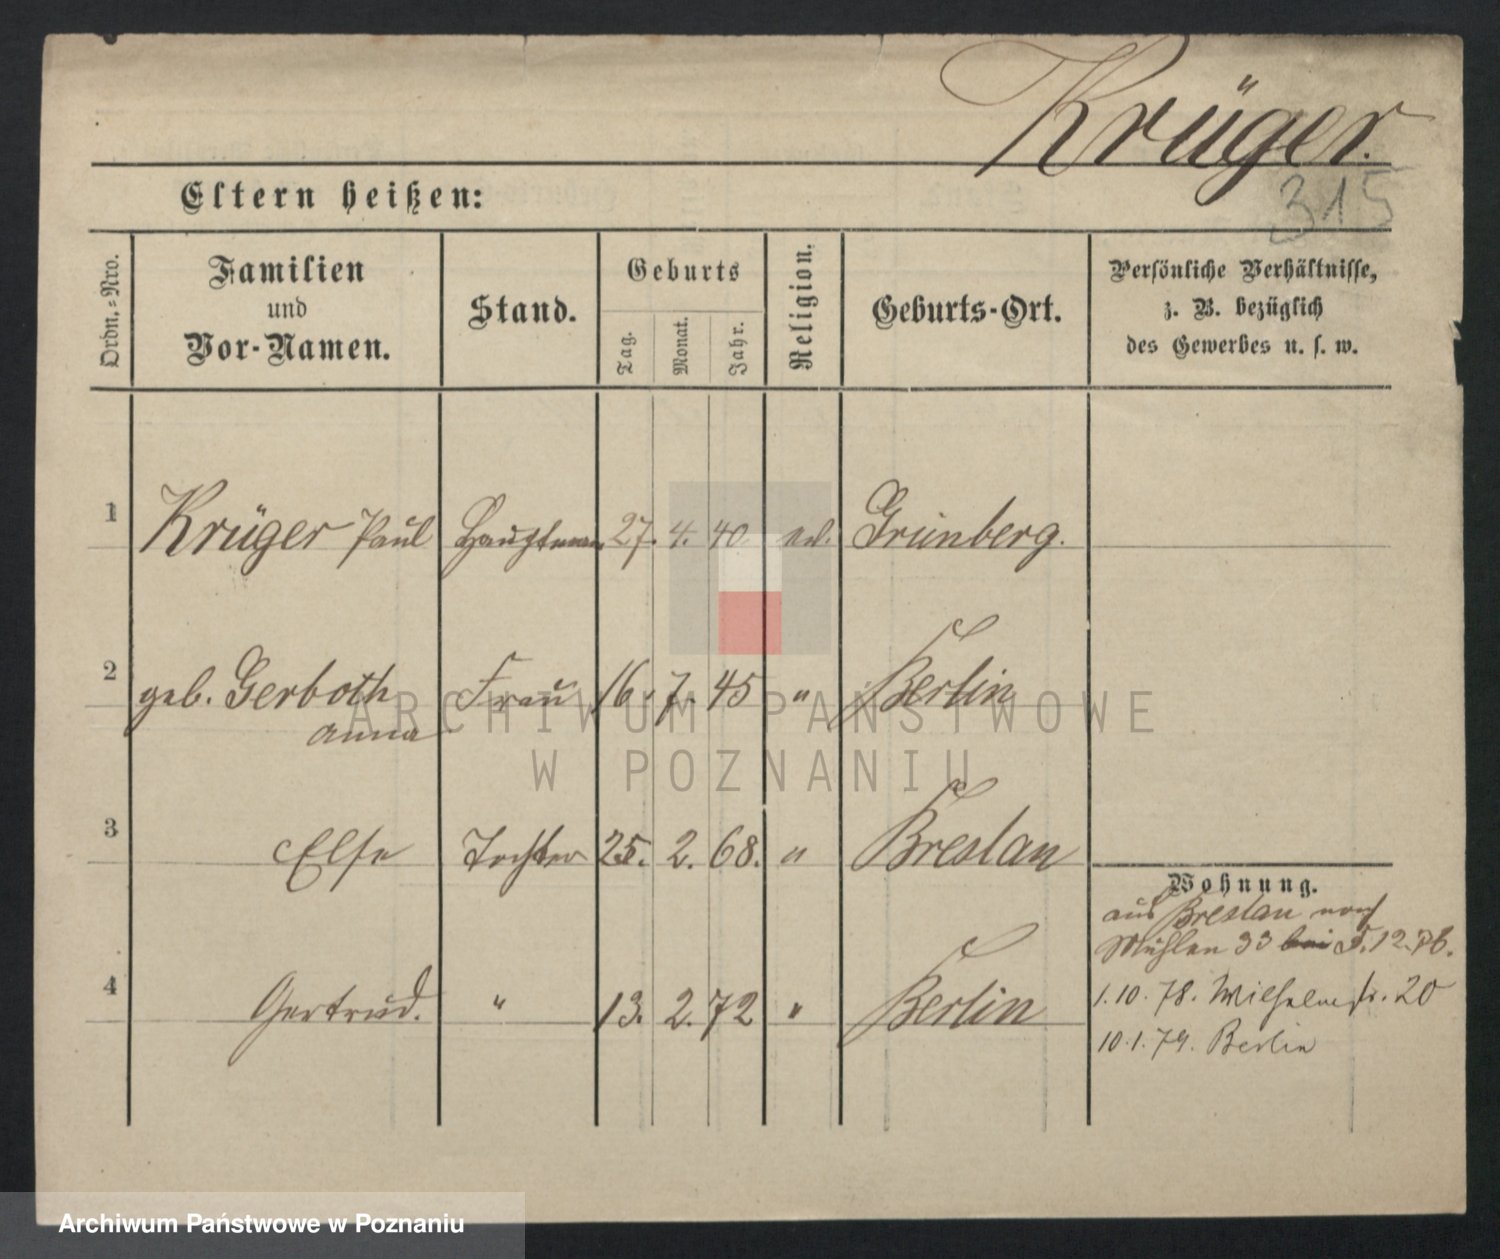 Krüger.
315
Eltern heißen:
Ordn.-Nro.
Familien
und
Vor-Namen.
Stand.
Geburts
Tag.
Monat.
Jahr.
Religion.
Geburts-Ort.
Persönliche Verhältnisse,
z. B. bezüglich
des Gewerbes u. s. w.
1 Krüger Paul Hauptmann 27. 4. 40. ev. Grünberg.
2 geb. Gerboth Frau 16. 7. 45 " Berlin
Anna
3 Else Tochter 25. 2. 68. " Breslau
4 Gertrud. " 13. 2. 72 " Berlin
Wohnung.
aus Breslau nach
Mühlen 33 bei 5. 12.
1. 10. 78. Wilhelmstr. 20
10. 1. 79. Berlin
ARCHIWUM PAŃSTWOWE
W POZNANIU
Archiwum Państwowe w Poznaniu